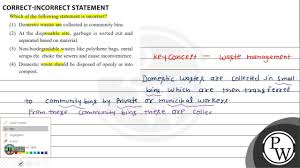 CORRECT-INCORRECT STATEMENT
Which of the following statement is incorrect?
(1) Domestic wastes are collected in community bins.
(2) At the disposable site, garbage is sorted out and
separated based on material.
(3) Non-biodegradable wastes like polythene bags, metal
scraps etc. choke the sewers and cause inconvenience.
(4) Domestic waste should be disposed of openly or into
compost.
Key Concept - Waste management
Domestic wastes are collected in small
bins which are then transferred
to community bins by private or municipal workers
From these community bins these are collec
PW